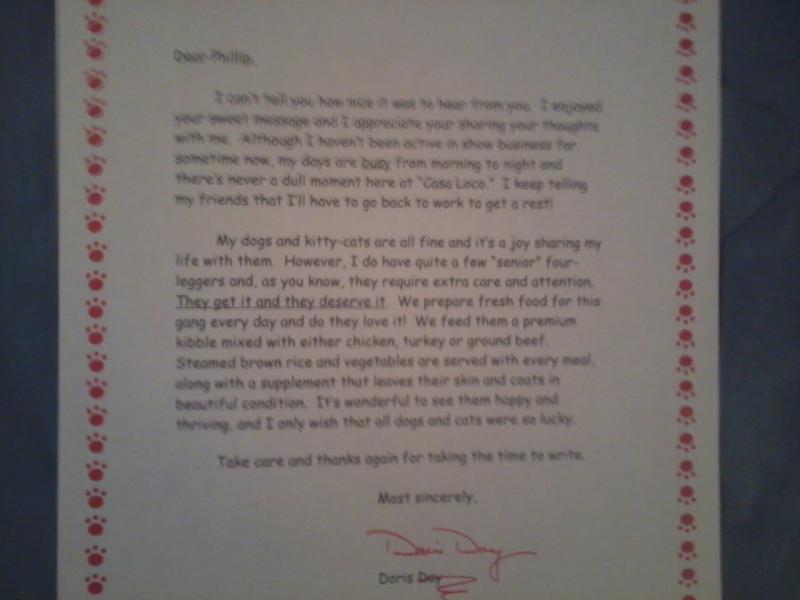 Dear Phillip,
I can't tell you how nice it was to hear from you. I enjoyed
your sweet message and I appreciate your sharing your thoughts
with me. Although I haven't been active in show business for
sometime now, my days are busy from morning to night and
there's never a dull moment here at "Casa Loco." I keep telling
my friends that I'll have to go back to work to get a rest!
My dogs and kitty-cats are all fine and it's a joy sharing my
life with them. However, I do have quite a few "senior" four-
leggers and, as you know, they require extra care and attention.
They get it and they deserve it. We prepare fresh food for this
gang every day and do they love it! We feed them a premium
kibble mixed with either chicken, turkey or ground beef.
Steamed brown rice and vegetables are served with every meal,
along with a supplement that leaves their skin and coats in
beautiful condition. It's wonderful to see them happy and
thriving, and I only wish that all dogs and cats were so lucky.
Take care and thanks again for taking the time to write.
Most sincerely,
Doris Day
Doris Day